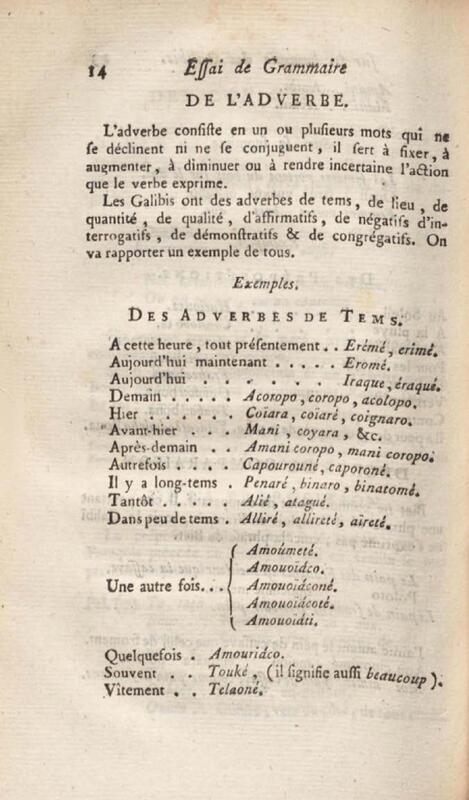 14 Essai de Grammaire
DE L'ADVERBE.
L'adverbe consiste en un ou plusieurs mots qui ne
se déclinent ni ne se conjuguent, il sert à fixer, à
augmenter, à diminuer ou à rendre incertaine l'action
que le verbe exprime.
Les Galibis ont des adverbes de tems, de lieu, de
quantité, de qualité, d'affirmatifs, de négatifs d'in-
terrogatifs, de démonstratifs & de congrégatifs. On
va rapporter un exemple de tous.
Exemples.
DES ADVERBES DE TEMS.
A cette heure, tout présentement . . Erémé, erimé.
Aujourd'hui maintenant . . . . . Eromé.
Aujourd'hui . . . . . . Iraque, éraqué.
Demain . . . . . Acoropo, coropo, acolopo.
Hier . . . . . . Coïara, coïaré, coignaro.
Avant-hier . . . Mani, coyara, &c.
Après-demain . . Amani coropo, mani coropo.
Autrefois . . . . Capourouné, caporoné.
Il y a long-tems . Penaré, binaro, binatomé.
Tantôt . . . . . Alié, atagué.
Dans peu de tems . Alliré, allireté, aïreté.
Une autre fois. . . { Amoûmeté.
Amouoïáco.
Amouoïáconé.
Amouoïácoté.
Amouoïáti.
Quelquefois . Amouriáco.
Souvent . . Touké, (il signifie aussi beaucoup).
Vîtement . . Telaoné.